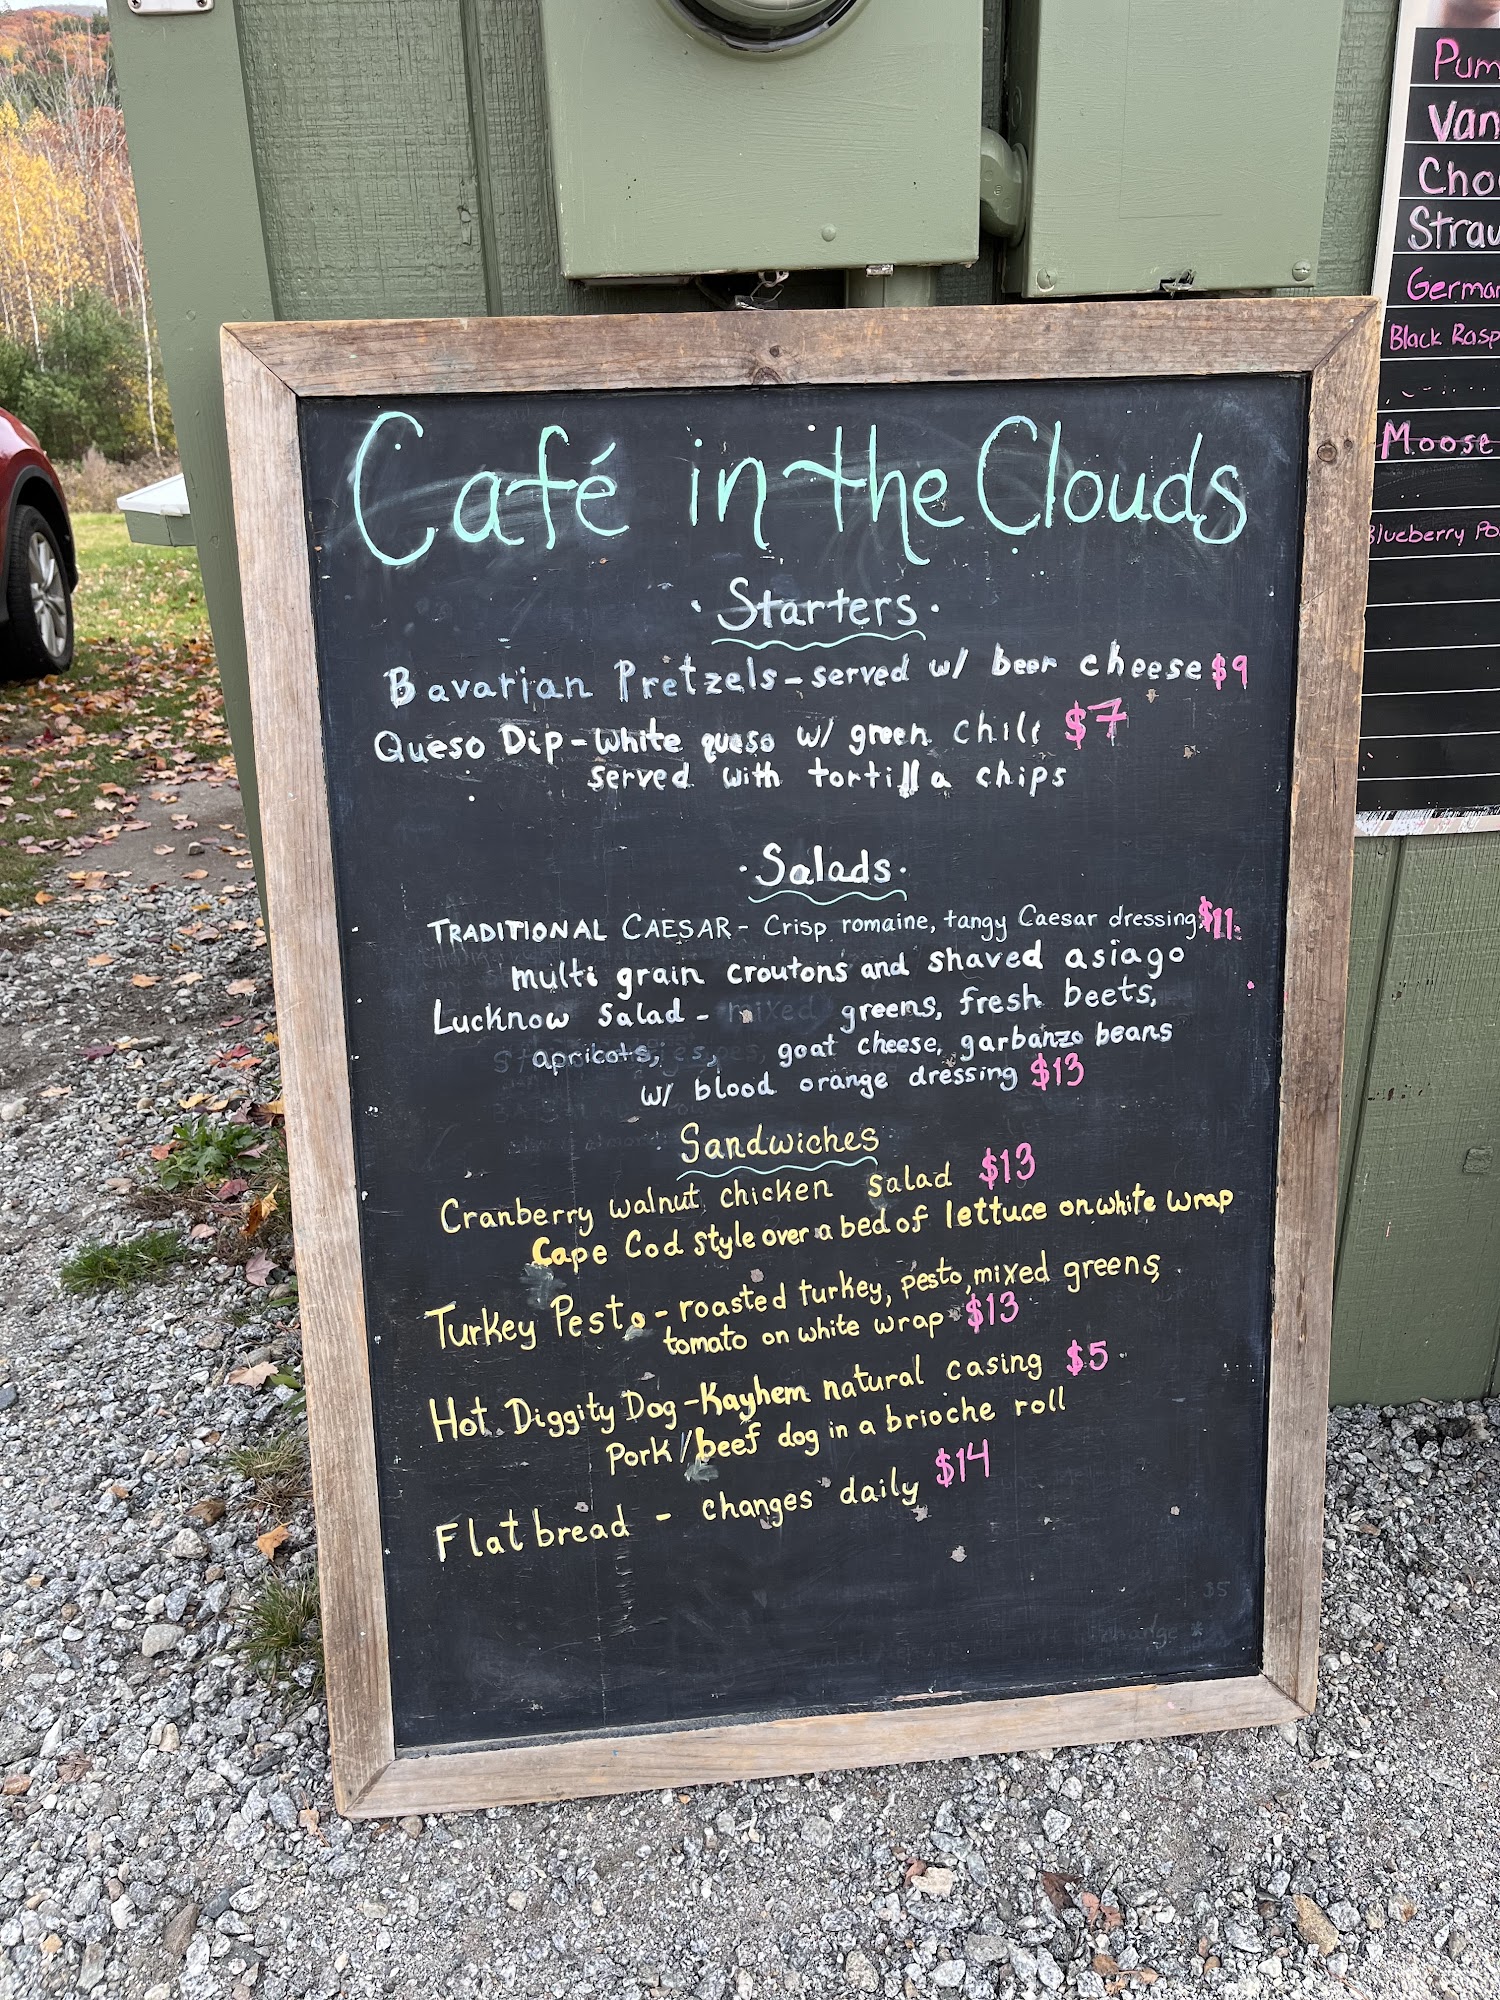 Café in the Clouds
· Starters ·
Bavarian Pretzels - served w/ beer cheese $9
Queso Dip - White queso w/ green chili $7
served with tortilla chips
· Salads ·
TRADITIONAL CAESAR - Crisp romaine, tangy Caesar dressing, $11
multi grain croutons and shaved asiago
Lucknow Salad - mixed greens, fresh beets,
apricots, goat cheese, garbanzo beans
w/ blood orange dressing $13
· Sandwiches
Cranberry walnut chicken salad $13
Cape Cod style over a bed of lettuce on white wrap
Turkey Pesto - roasted turkey, pesto, mixed greens,
tomato on white wrap $13
Hot Diggity Dog - Kayhem natural casing $5
Pork/beef dog in a brioche roll
Flatbread - changes daily $14
Pum
Van
Cho
Straw
German
Black Rasp
Moose
Blueberry Po